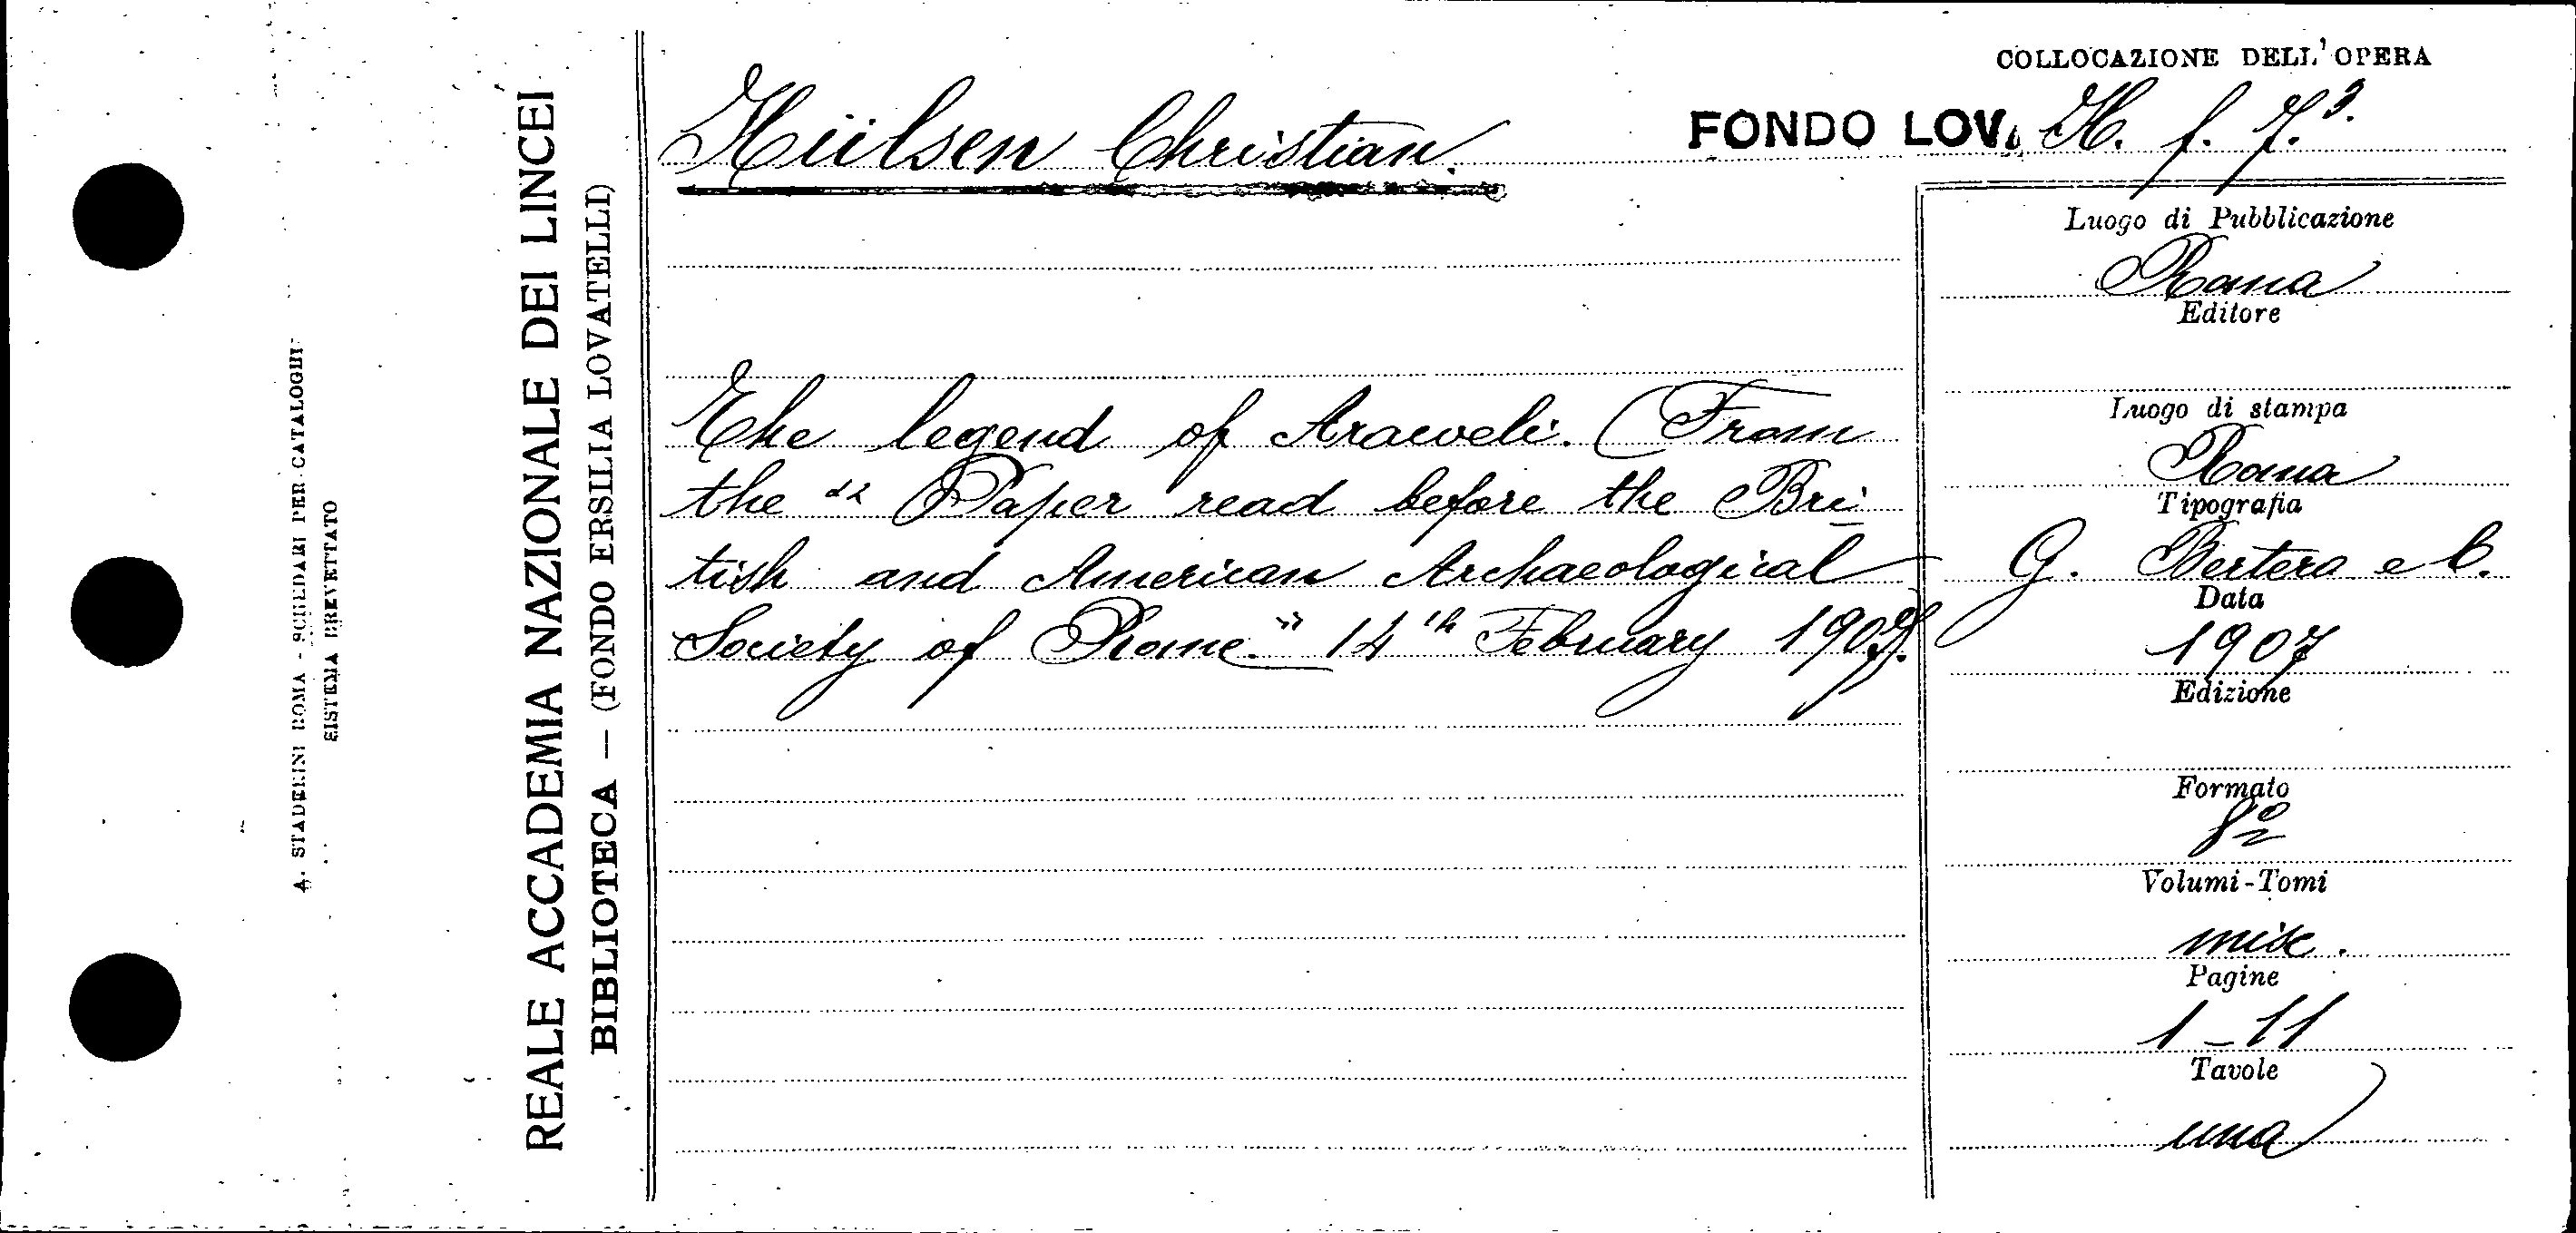 COLLOCAZIONE DELL'OPERA
FONDO LOV. H. f. 7.³
Hülsen Christian.
The legend of Araweli. (From
the „ Paper read before the Bri
tish and American Archaeological
Society of Rome." 14th February 1907).
Luogo di Pubblicazione
Roma
Editore
Luogo di stampa
Roma
Tipografia
G. Bertero e C.
Data
1907
Edizione
Formato
8º
Volumi-Tomi
misc.
Pagine
1-11
Tavole
una
REALE ACCADEMIA NAZIONALE DEI LINCEI
BIBLIOTECA — (FONDO ERSILIA LOVATELLI)
A. STADERINI ROMA - SCHEDARI PER CATALOGHI
SISTEMA BREVETTATO